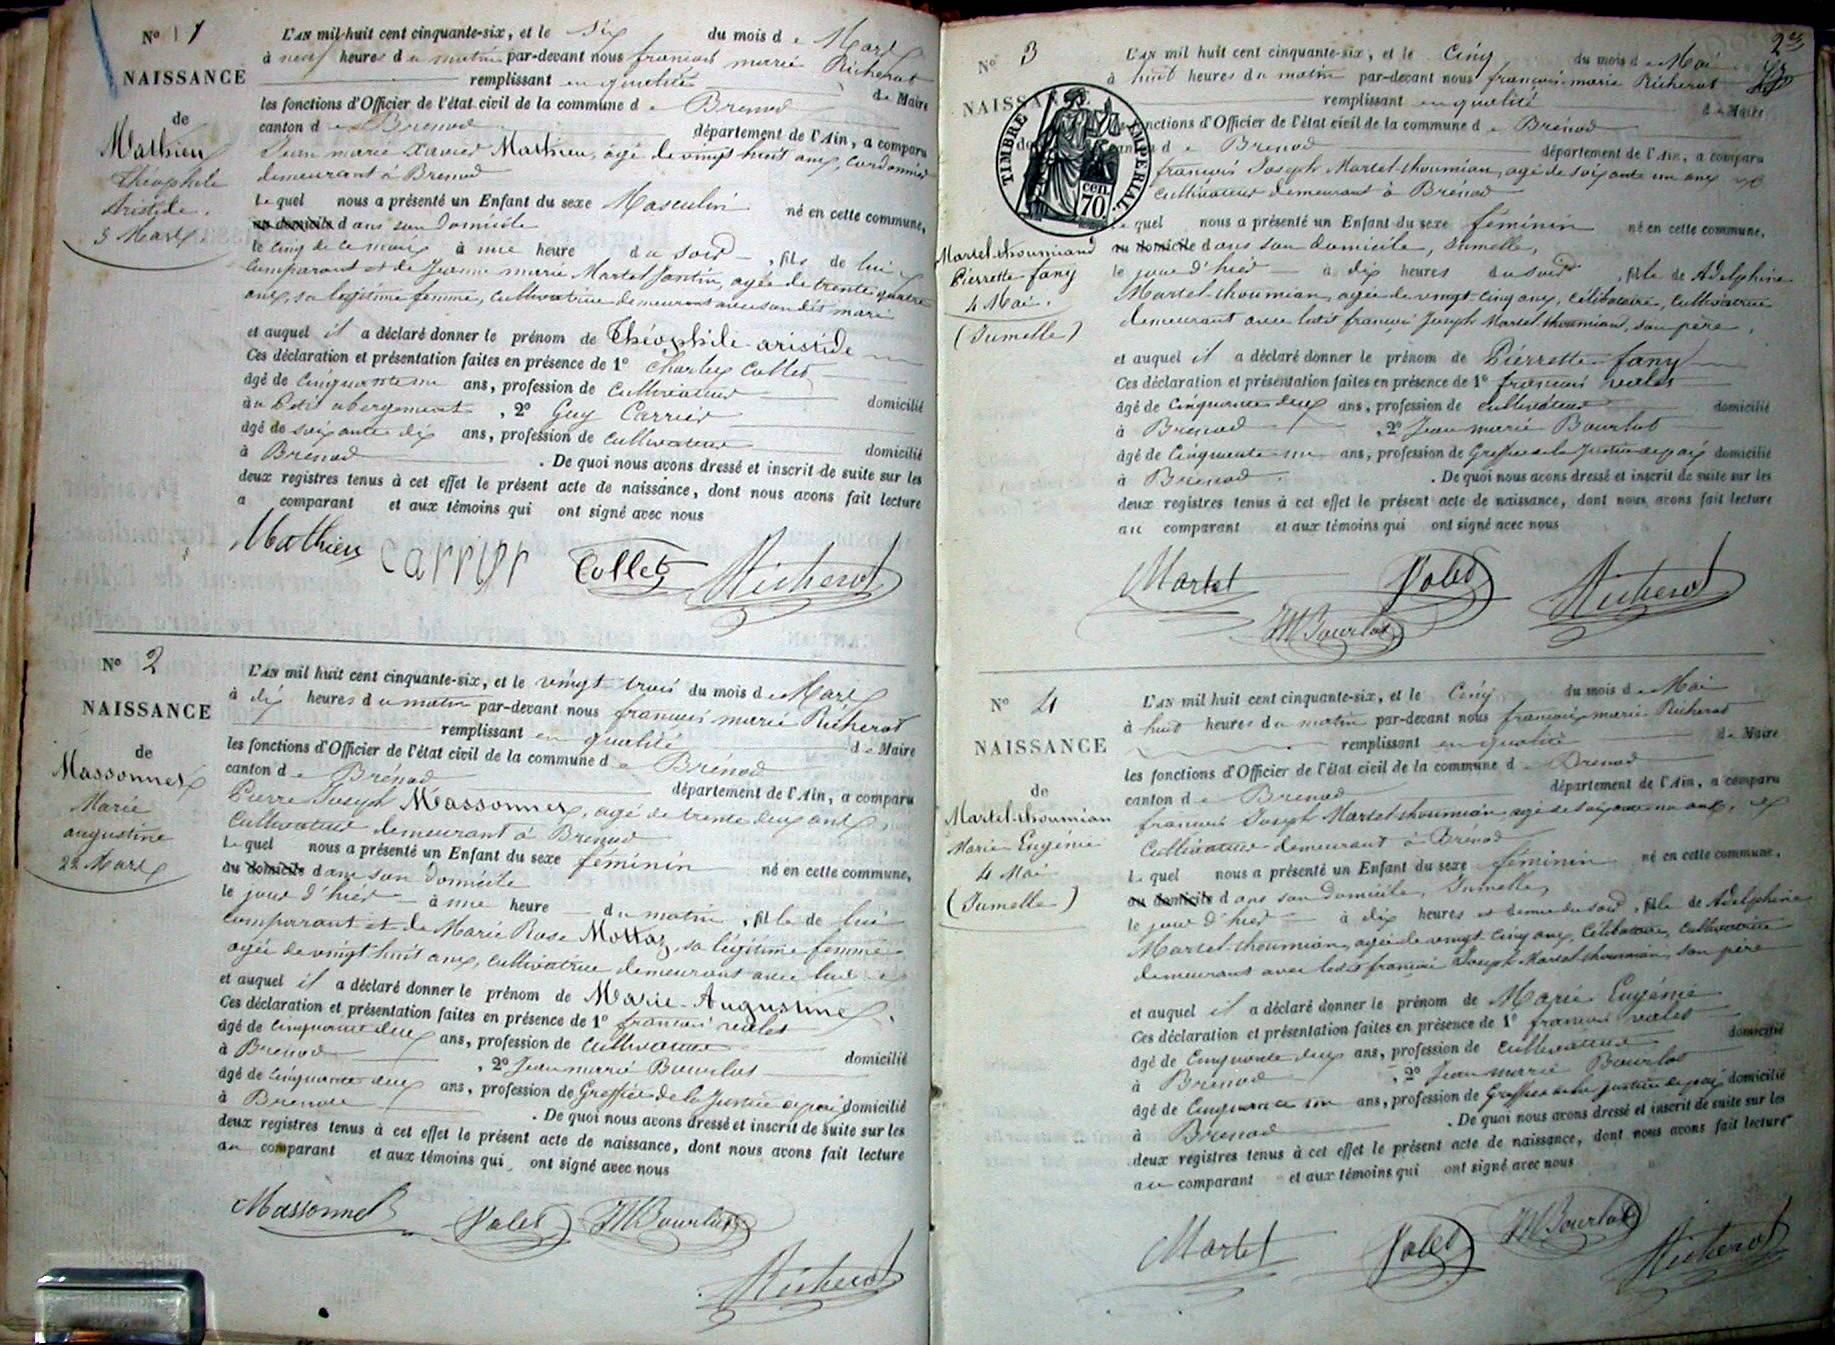 N° 1
NAISSANCE
de
Mathieu
théophile
Aristide.
5 Mars
L'AN mil huit cent cinquante-six, et le six du mois de Mars
à neuf heures du matin par-devant nous françois marie Richerot
remplissant en qualité de Maire
les fonctions d'Officier de l'état civil de la commune de Brenod
canton de Brenod département de l'Ain, a comparu
Jean marie Xavier Mathieu, âgé de vingt huit ans, cordonnier
demeurant à Brenod
Lequel nous a présenté un Enfant du sexe Masculin né en cette commune,
au domicile dans son domicile
le cinq de ce mois à une heure du soir, fils de lui
comparant et de Jeanne marie Martel Jantin, agée de trente quatre
ans, sa légitime femme, cultivatrice demeurant avec son dit mari
et auquel il a déclaré donner le prénom de Théophile aristide
Ces déclaration et présentation faites en présence de 1° Charles Collet
âgé de cinquante un ans, profession de cultivateur domicilié
au Petit abergement, 2° Guy Carrier
âgé de soixante dix ans, profession de cultivateur domicilié
à Brenod. De quoi nous avons dressé et inscrit de suite sur les
deux registres tenus à cet effet le présent acte de naissance, dont nous avons fait lecture
a comparant et aux témoins qui ont signé avec nous
Mathieu carrier Collet Richerot
N° 2
NAISSANCE
de
Massonnex
Marie
augustine
22 Mars
L'AN mil huit cent cinquante-six, et le vingt trois du mois de Mars
à dix heures du matin par-devant nous françois marie Richerot
remplissant en qualité de Maire
les fonctions d'Officier de l'état civil de la commune de Brénod
canton de Brénod département de l'Ain, a comparu
Pierre Joseph Massonnex, agé de trente deux ans
cultivateur demeurant à Brenod
Lequel nous a présenté un Enfant du sexe féminin né en cette commune,
au domicile dans son domicile
le jour d'hier à une heure du matin, fille de lui
comparant et de Marie Rose Mottaz, sa légitime femme
agée de vingt huit ans, cultivatrice demeurant avec lui
et auquel il a déclaré donner le prénom de Marie-Augustine.
Ces déclaration et présentation faites en présence de 1° francois valet
âgé de cinquante deux ans, profession de cultivateur domicilié
à Brenod, 2° Jean marie Bourlot
âgé de cinquante deux ans, profession de Greffier de la Justice de paix domicilié
à Brenod. De quoi nous avons dressé et inscrit de suite sur les
deux registres tenus à cet effet le présent acte de naissance, dont nous avons fait lecture
au comparant et aux témoins qui ont signé avec nous
Massonnex Valet JM Bourlot
Richerot
N° 3
NAISSAN
TIMBRE IMPERIAL.
cen.
70
Martel-thoumiand
Pierrette fany
4 Mai.
(Jumelle)
L'AN mil huit cent cinquante-six, et le Cinq du mois de Mai
à huit heures du matin par-devant nous françois-marie Richerot
remplissant en qualité de Maire
fonctions d'Officier de l'état civil de la commune de Brénod
canton de Brenod département de l'Ain, a comparu
francois Joseph Martel-thoumian, agé de soixante un ans
cultivateur demeurant à Brénod
Lequel nous a présenté un Enfant du sexe féminin né en cette commune,
au domicile dans son domicile, Jumelle,
le jour d'hier à dix heures du soir, fille de Adelphine
Martel-thoumian, agée de vingt-cinq ans, célibataire, cultivatrice
demeurant avec ledit françois Joseph Martel-thoumiand, son père,
et auquel il a déclaré donner le prénom de Pierrette-fany
Ces déclaration et présentation faites en présence de 1° francois valet
âgé de cinquante deux ans, profession de cultivateur domicilié
à Brenod, 2° Jean marie Bourlot
âgé de Cinquante un ans, profession de Greffier de la Justice de paix domicilié
à Brenod. De quoi nous avons dressé et inscrit de suite sur les
deux registres tenus à cet effet le présent acte de naissance, dont nous avons fait lecture
au comparant et aux témoins qui ont signé avec nous
Martel Valet Richerot
JM Bourlot
N° 4
NAISSANCE
de
Martel-thoumian
Marie-Eugénie
4 Mai
(Jumelle)
L'AN mil huit cent cinquante-six, et le Cinq du mois de Mai
à huit heures du matin par-devant nous françois marie Richerot
remplissant en qualité de Maire
les fonctions d'Officier de l'état civil de la commune de Brenod
canton de Brenod département de l'Ain, a comparu
francois Joseph Martel-thoumian, agé de soixante un ans,
cultivateur demeurant à Brénod
Lequel nous a présenté un Enfant du sexe féminin né en cette commune,
au domicile dans son domicile, Jumelle,
le jour d'hier à dix heures et demie du soir, fille de Adelphine
Martel-thoumian, agée de vingt-cinq ans, célibataire, cultivatrice
demeurant avec ledit françois Joseph Martel thoumian, son père
et auquel il a déclaré donner le prénom de Marie Eugénie
Ces déclaration et présentation faites en présence de 1° francois valet
âgé de Cinquante deux ans, profession de cultivateur domicilié
à Brenod, 2° Jean marie Bourlot
âgé de Cinquante un ans, profession de Greffier de la Justice de paix domicilié
à Brenod. De quoi nous avons dressé et inscrit de suite sur les
deux registres tenus à cet effet le présent acte de naissance, dont nous avons fait lecture
au comparant et aux témoins qui ont signé avec nous
Martel Valet JM Bourlot Richerot